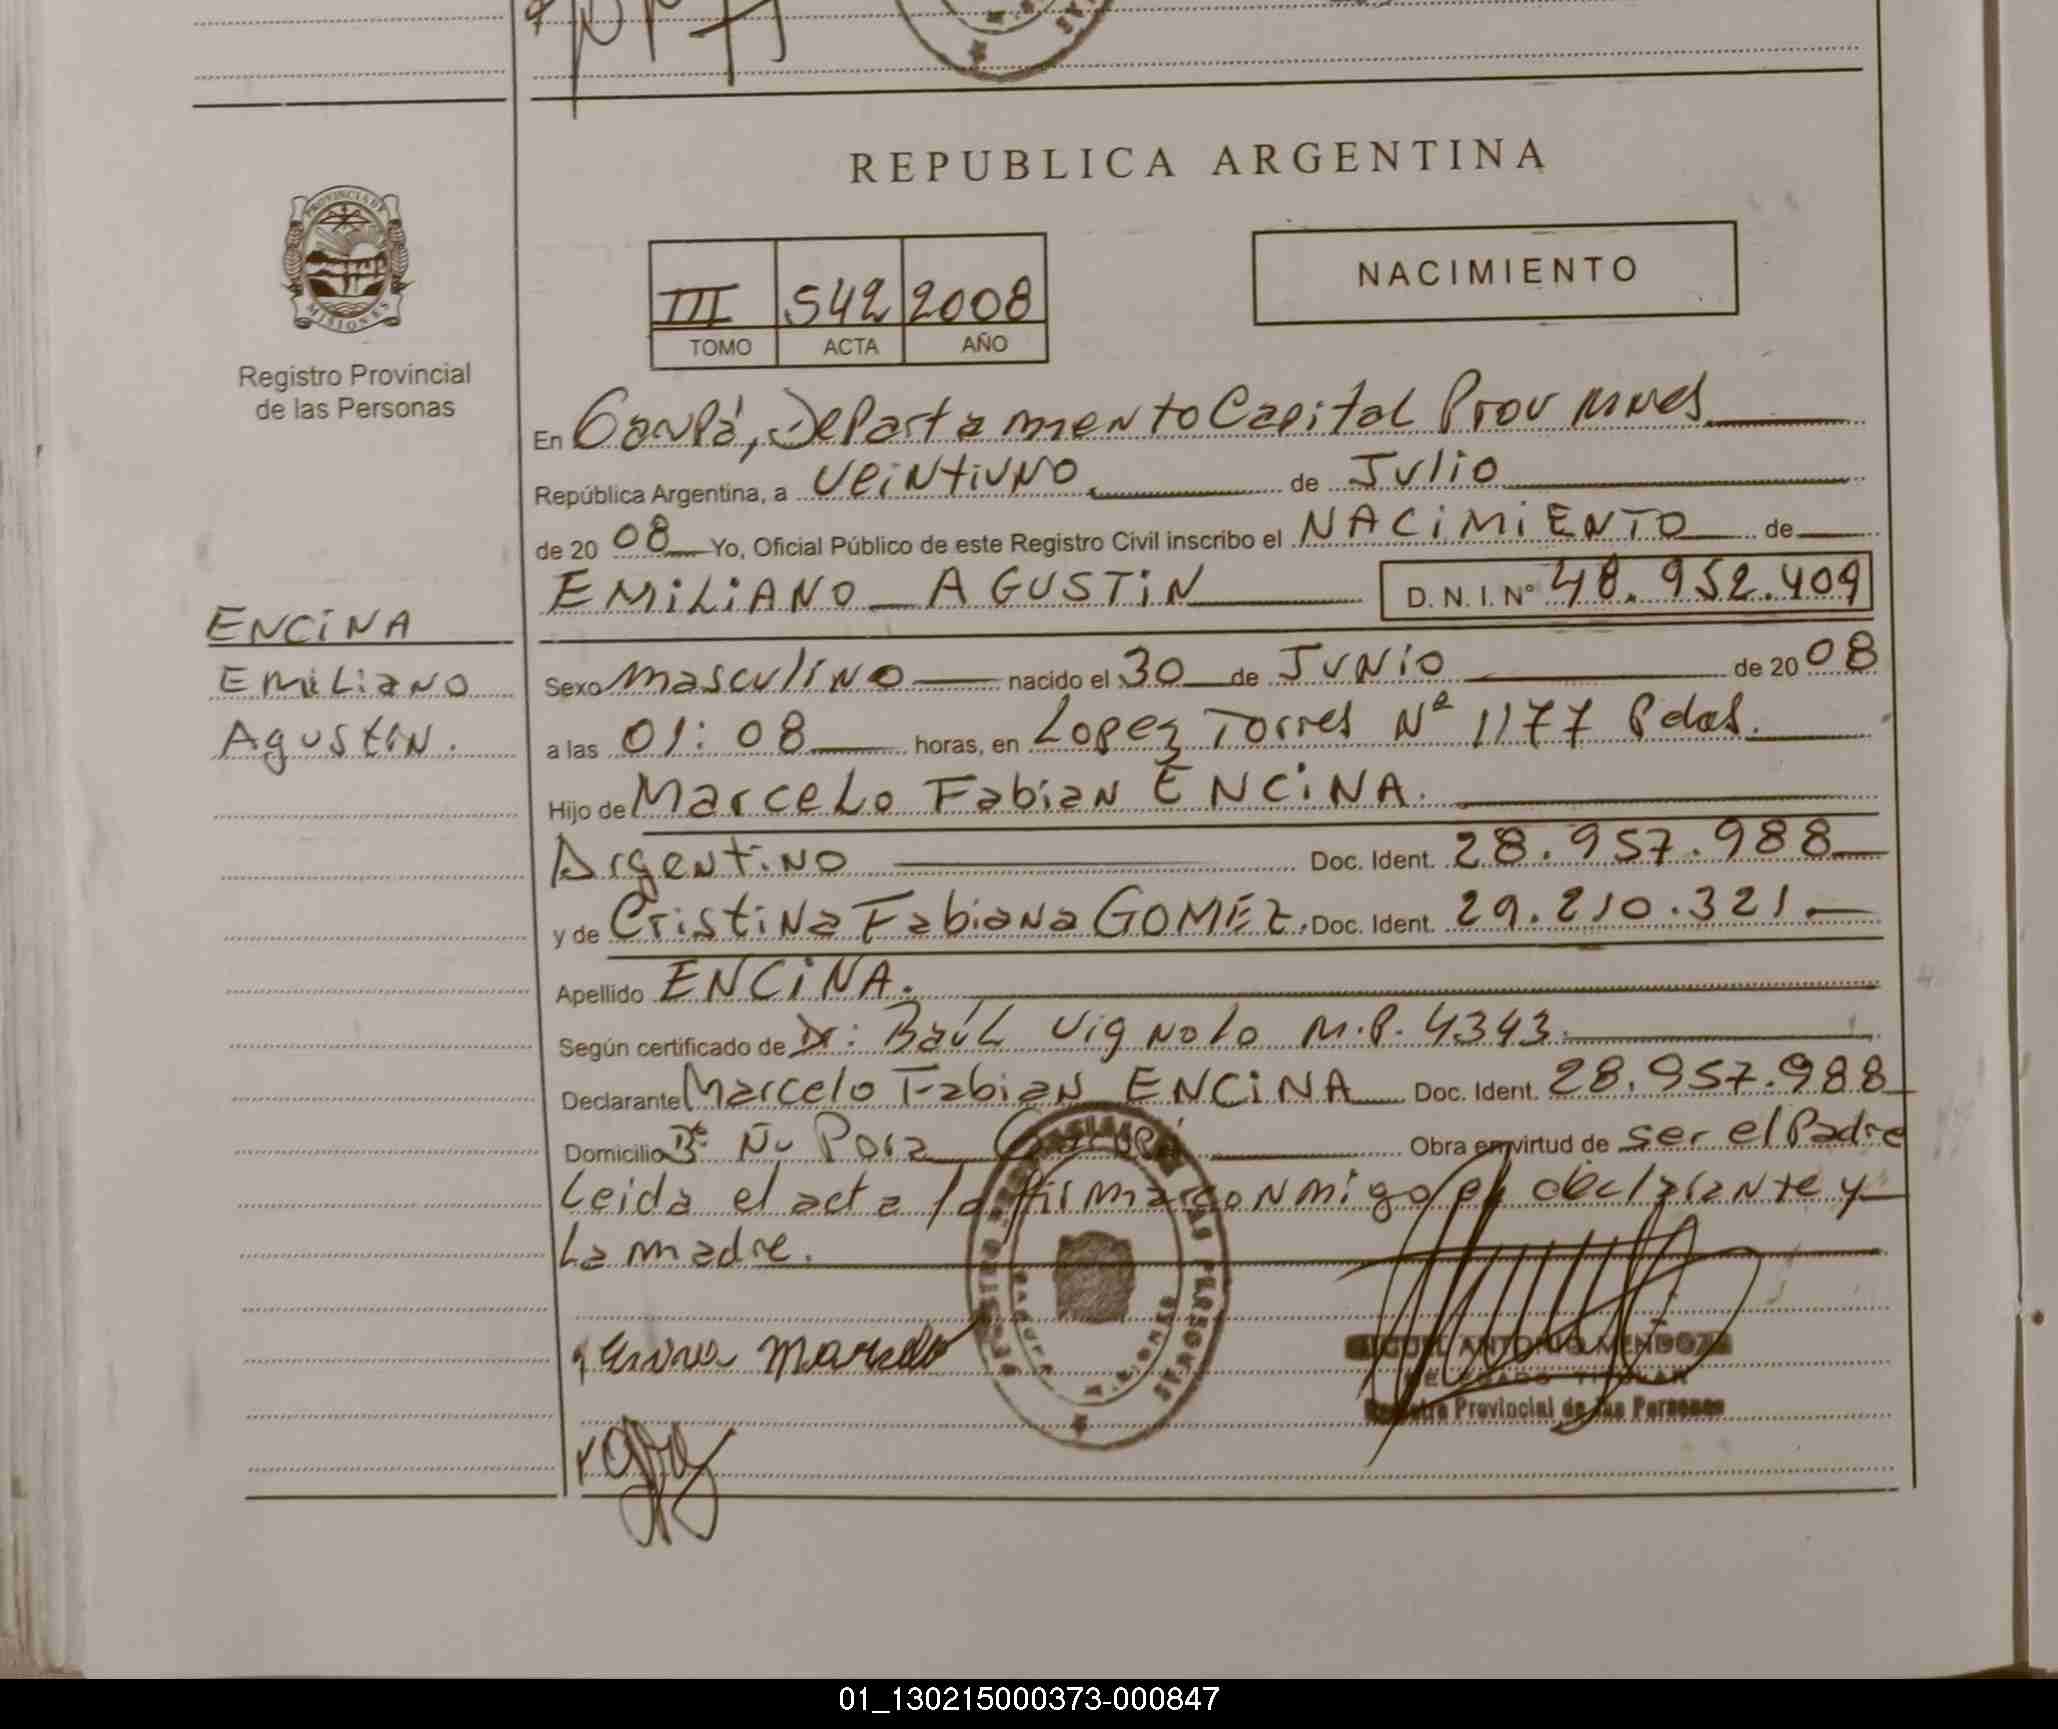 REPUBLICA ARGENTINA
PROVINCIA DE
MISIONES
Registro Provincial
de las Personas
NACIMIENTO
III 542 2008
TOMO ACTA AÑO
En Garupá, Departamento Capital Prov Mnes
República Argentina, a veintiuno de Julio
de 2008 Yo, Oficial Público de este Registro Civil inscribo el NACIMIENTO de
EMILIANO AGUSTIN D.N.I.Nº 48.952.409
ENCINA
Emiliano
Agustin.
Sexo masculino nacido el 30 de Junio de 2008
a las 01:08 horas, en Lopez Torres Nº 1177 Pdas.
Hijo de Marcelo Fabian ENCINA.
Argentino Doc. Ident. 28.957.988
y de Cristina Fabiana GOMEZ. Doc. Ident. 29.210.321
Apellido ENCINA.
Según certificado de Dr: Raúl Vignolo M.P. 4343.
Declarante Marcelo Fabian ENCINA Doc. Ident. 28.957.988
Domicilio Bº Ñu Pora Garupá Obra en virtud de ser el Padre
Leida el acta la firma conmigo el declarante y
la madre.
Encina Marcelo
MIGUEL ANTONIO MENDOZA
DELEGADO TITULAR
Registro Provincial de las Personas
01_130215000373-000847